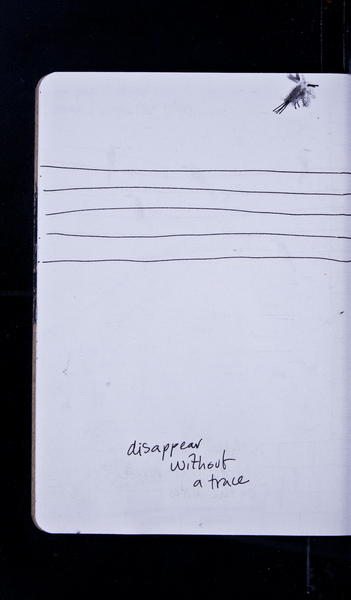 disappear
without
a trace